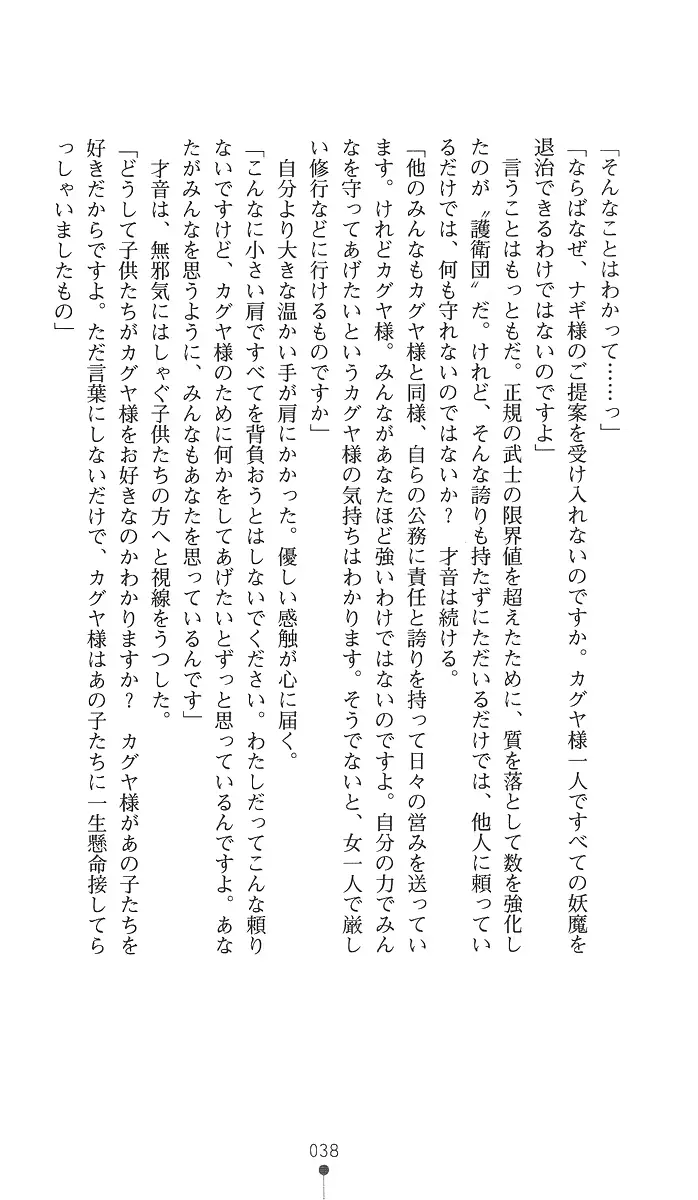 「そんなことはわかって……っ」
「ならばなぜ、ナギ様のご提案を受け入れないのですか。カグヤ様一人ですべての妖魔を
退治できるわけではないのですよ」
　言うことはもっともだ。正規の武士の限界値を超えたために、質を落として数を強化し
たのが〝護衛団〟だ。けれど、そんな誇りも持たずにただいるだけでは、他人に頼ってい
るだけでは、何も守れないのではないか？　才音は続ける。
「他のみんなもカグヤ様と同様、自らの公務に責任と誇りを持って日々の営みを送ってい
ます。けれどカグヤ様。みんながあなたほど強いわけではないのですよ。自分の力でみん
なを守ってあげたいというカグヤ様の気持ちはわかります。そうでないと、女一人で厳し
い修行などに行けるものですか」
　自分より大きな温かい手が肩にかかった。優しい感触が心に届く。
「こんなに小さい肩ですべてを背負おうとはしないでください。わたしだってこんな頼り
ないですけど、カグヤ様のために何かをしてあげたいとずっと思っているんですよ。あな
たがみんなを思うように、みんなもあなたを思っているんです」
　才音は、無邪気にはしゃぐ子供たちの方へと視線をうつした。
「どうして子供たちがカグヤ様をお好きなのかわかりますか？　カグヤ様があの子たちを
好きだからですよ。ただ言葉にしないだけで、カグヤ様はあの子たちに一生懸命接してら
っしゃいましたもの」
038